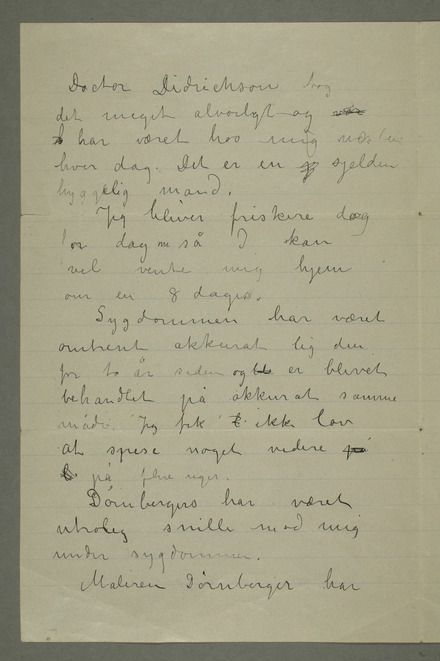 Doctor Didrichson tog
det meget alvorligt og
har været hos mig næsten
hver dag. Det er en sjelden
hyggelig mand.
Jeg bliver friskere dag
for dag så I kan
vel vente mig hjem
om en 8 dages.
Sygdommen har været
omtrent akkurat lig den
for to år siden og er blevet
behandlet på akkurat samme
måde. Jeg fik ikke lov
at spise noget videre
på flere uger.
Dørnbergers har været
utrolig snille mod mig
under sygdommen.
Maleren Dørnberger har